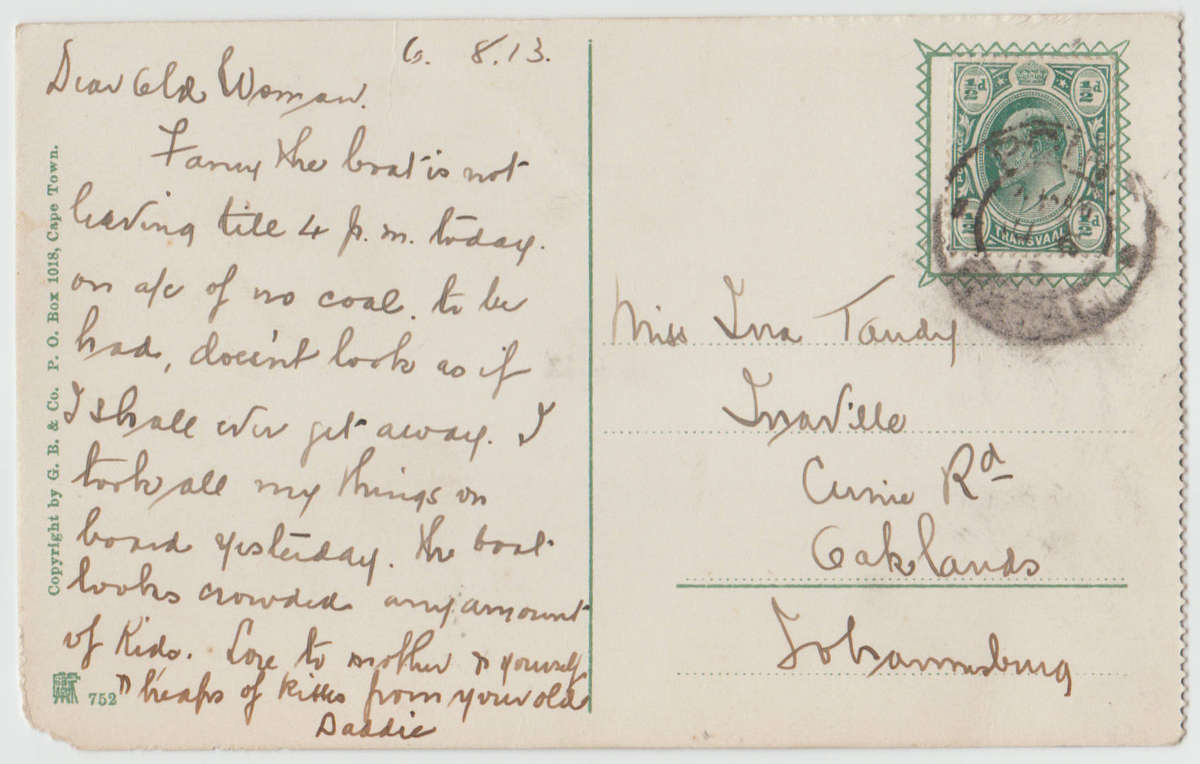 6. 8.13.
Dear Old Woman.
Fancy the boat is not
leaving till 4 p.m. today.
on a/c of no coal. to be
had, doesn't look as if
I shall ever get away. I
took all my things on
board yesterday. The boat
looks crowded any amount
of Kids. Love to mother & yourself
& heaps of kisses from your old
Daddie
Copyright by G. B. & Co. P. O. Box 1018, Cape Town.
752
½d ½d
POSTAGE
TRANSVAAL
½d ½d
Miss Ina Tandy
Inaville
Currie Rd
Oaklands
Johannesburg